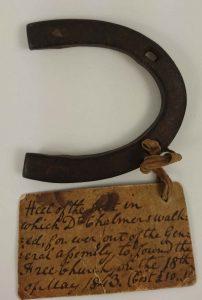 Heel of the boot in
which Dr Chalmers walk-
ed, for ever out of the Gen-
eral assembly to found the
Free church on the 18th
of May 1843. (Cost £10.10